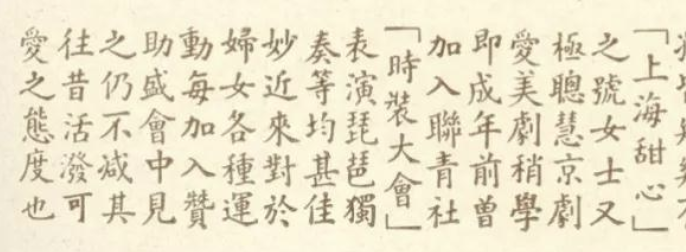 「上海甜心」
之號女士又
極聰慧京劇
愛美劇稍學
即成年前曾
加入聯青社
「時裝大會」
表演琵琶獨
奏等均甚佳
妙近來對於
婦女各種運
動每加入贊
助盛會中見
之仍不减其
往昔活潑可
愛之態度也